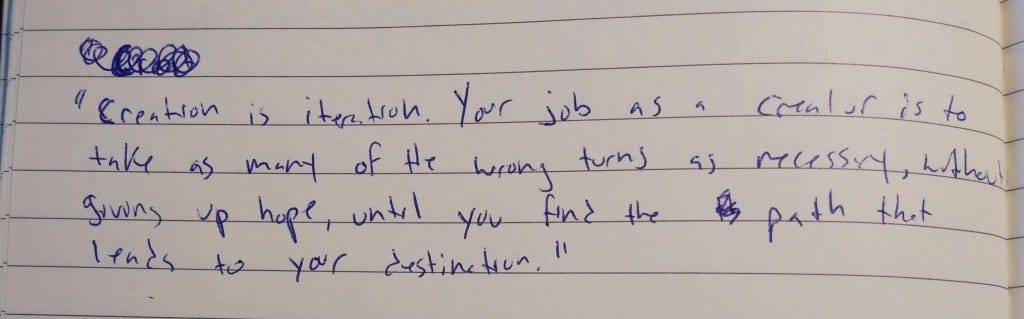 "Creation is iteration. Your job as a creator is to
take as many of the wrong turns as necessary, without
giving up hope, until you find the path that
leads to your destination."